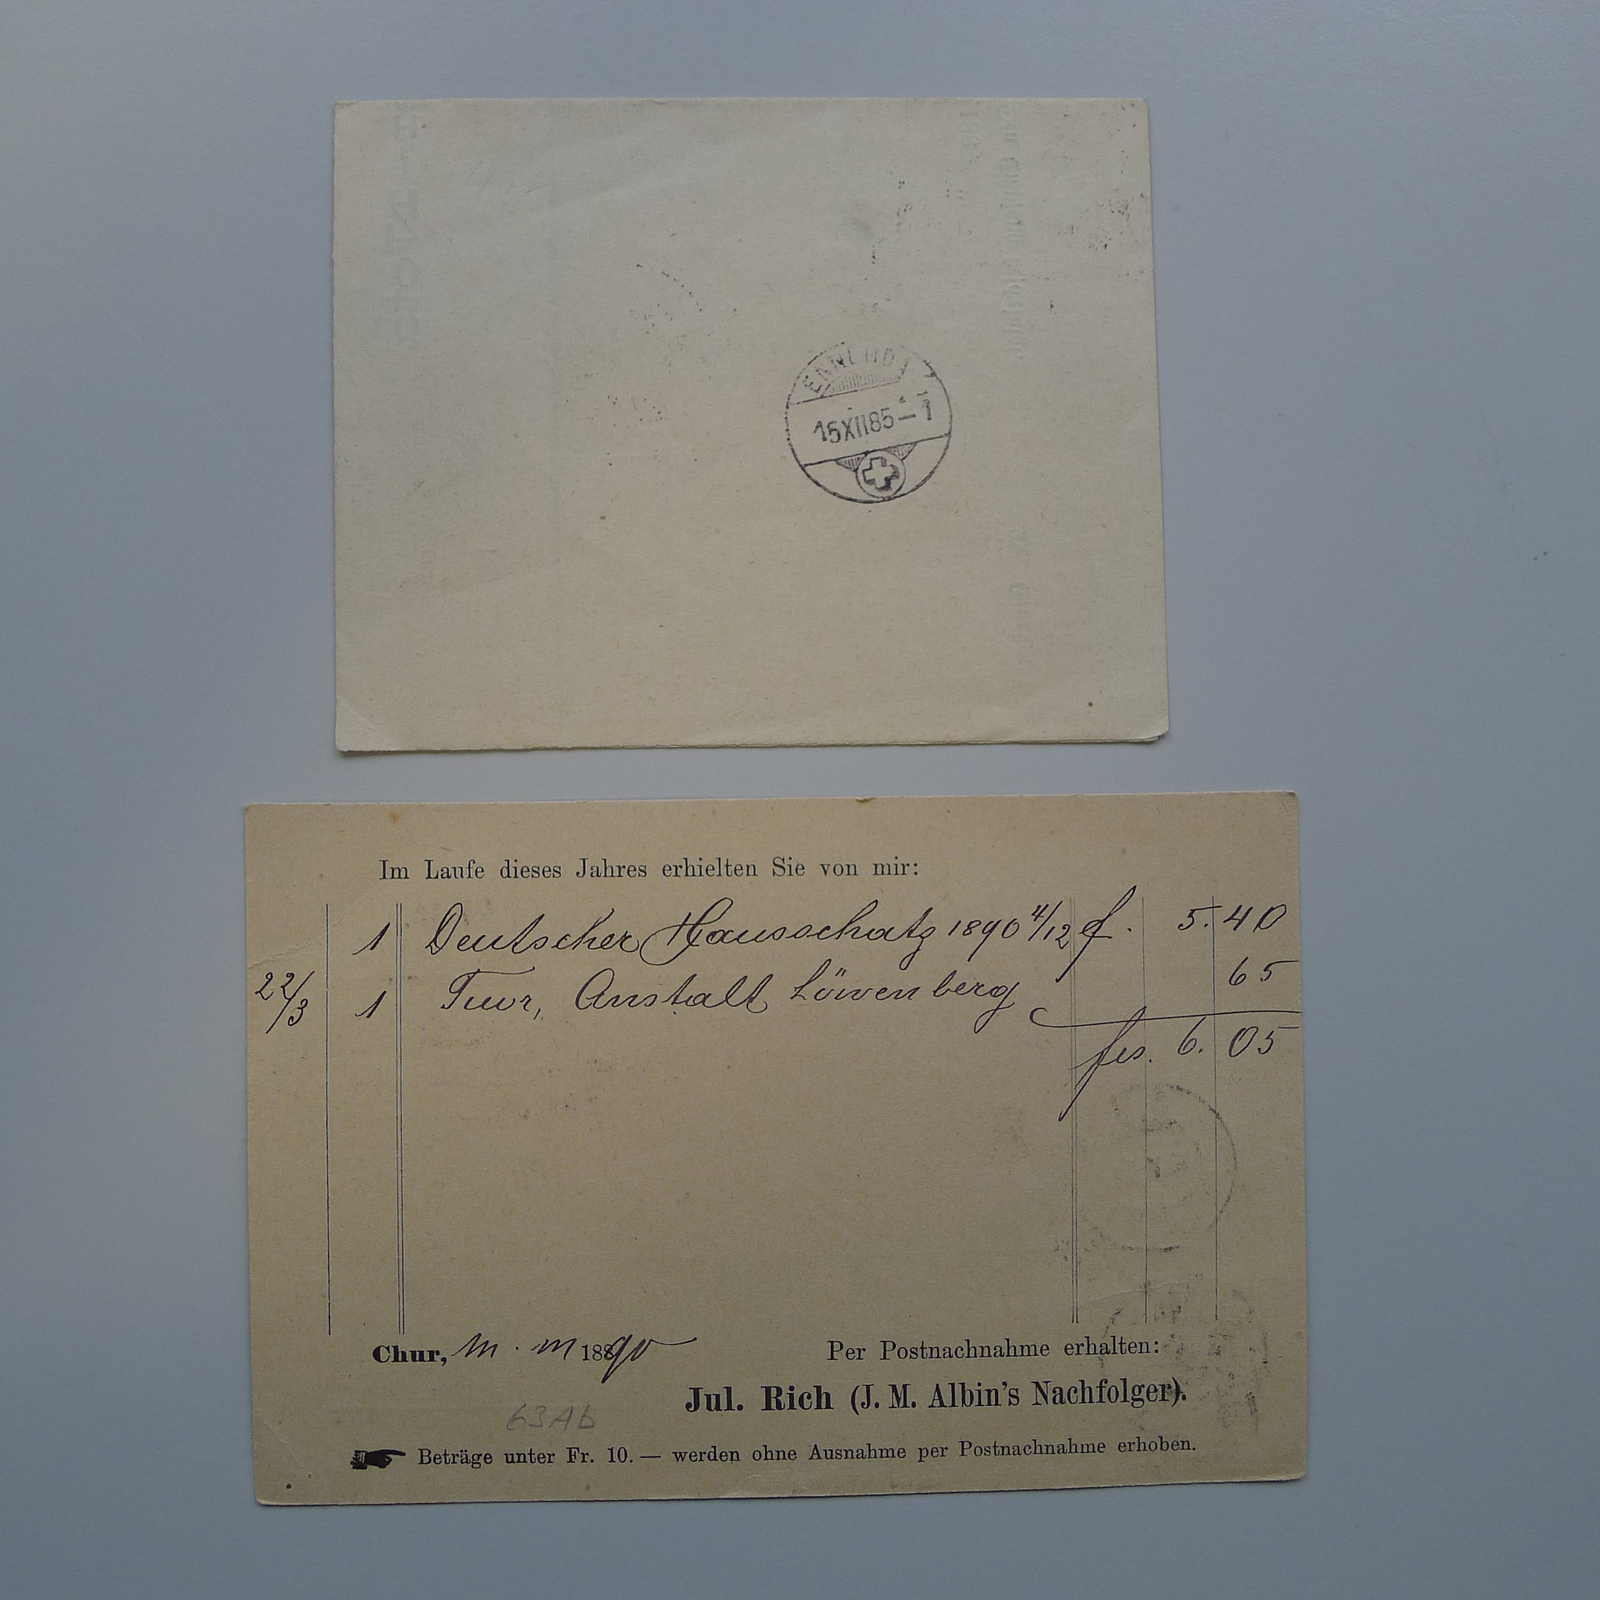 ENNENDA
15XII85-7
Im Laufe dieses Jahres erhielten Sie von mir:
1 Deutscher Hausschatz 1890 4/12 f. 5.40
22/3 1 Anstalt Löwenberg 65
frs. 6. 05
Chur, 18890
Per Postnachnahme erhalten:
Jul. Rich (J. M. Albin's Nachfolger).
63Ab
Beträge unter Fr. 10. — werden ohne Ausnahme per Postnachnahme erhoben.